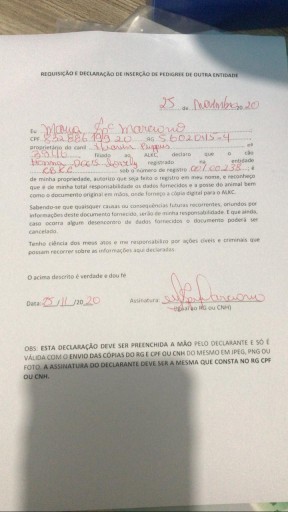 REQUISIÇÃO E DECLARAÇÃO DE INSERÇÃO DE PEDIGREE DE OUTRA ENTIDADE
25 de Novembro 20
Eu Maria
CPF RG
proprietário do canil nº
filiado ao ALKC, declaro que o cão
registrado na entidade
sob o número de registro é
de minha propriedade, autorizo que seja feito o registro em meu nome, e reconheço
que é de minha total responsabilidade os dados fornecidos e a posse do animal bem
como o documento original em mãos, onde forneço a cópia digital para o ALKC.
Sabendo-se que quaisquer causas ou consequências futuras recorrentes, oriundos por
informações deste documento fornecido, serão de minha responsabilidade. E que ainda,
caso ocorra algum desencontro de dados fornecidos o documento poderá ser
cancelado.
Tenho ciência dos meus atos e me responsabilizo por ações cíveis e criminais que
possam recorrer sobre as informações aqui declaradas.
O acima descrito é verdade e dou fé
Data: 25/11/2020 Assinatura:
(Igual ao RG ou CNH)
OBS: ESTA DECLARAÇÃO DEVE SER PREENCHIDA A MÃO PELO DECLARANTE E SÓ É
VÁLIDA COM O ENVIO DAS CÓPIAS DO RG E CPF OU CNH DO MESMO EM JPEG, PNG OU
FOTO. A ASSINATURA DO DECLARANTE DEVE SER A MESMA QUE CONSTA NO RG CPF
OU CNH.